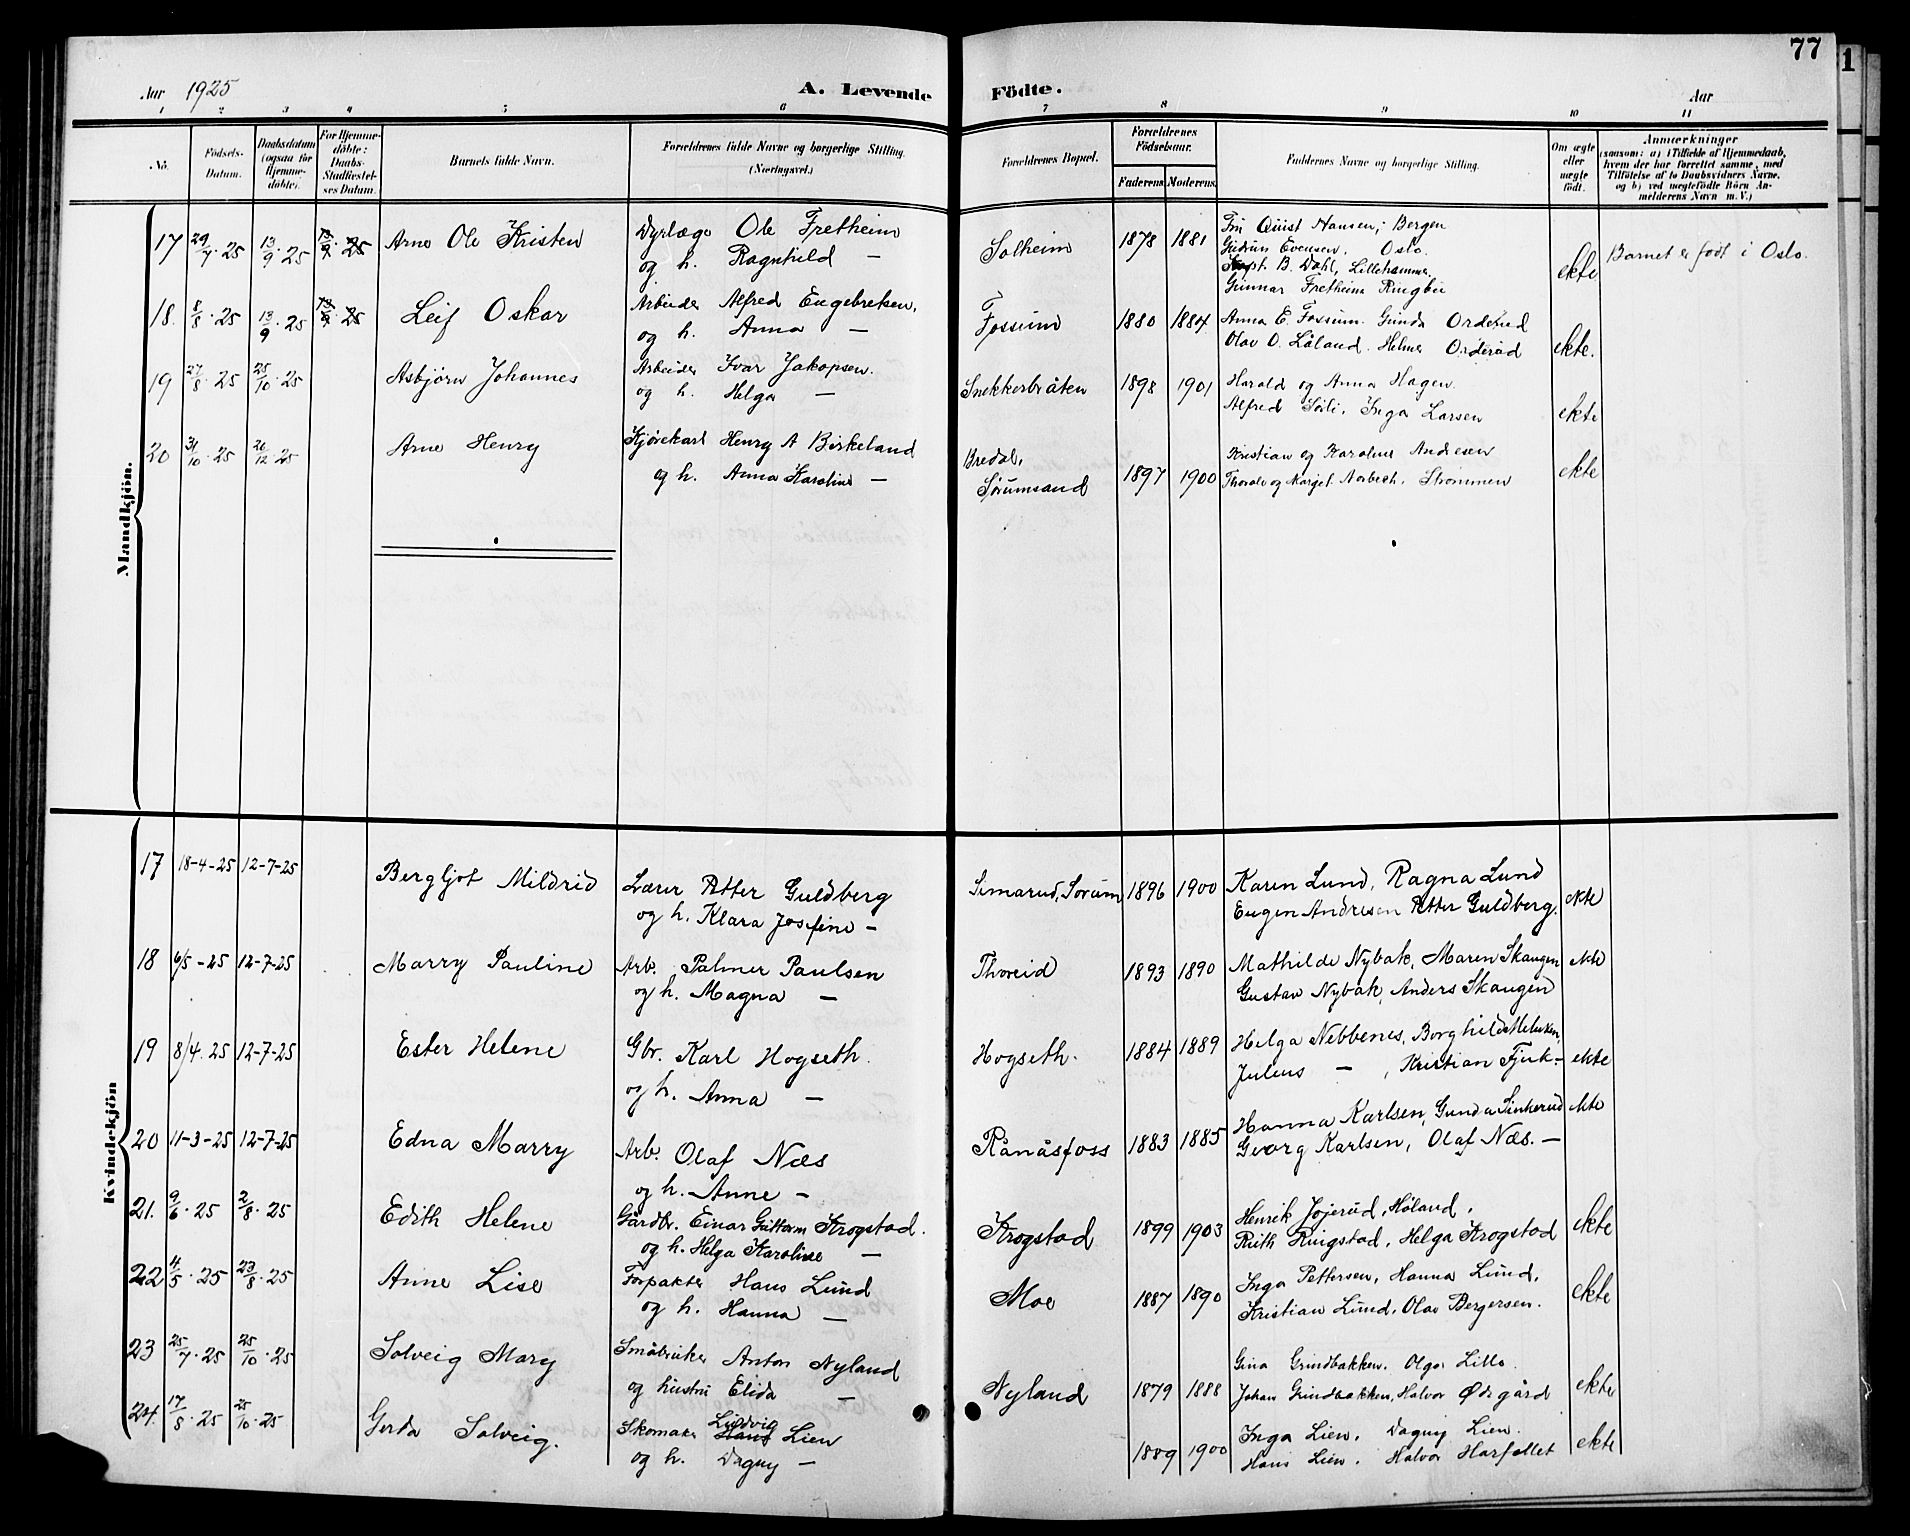 77
1
Aar 1925 A. Levende Födte. Aar
1 2 3 4 5 6 7 8 9 10 11
No. Födsels-Datum. Daabsdatum (ogsaa for Hjemmedöbte). For Hjemmedöbte: Daabs-Stadfæstelses Datum. Barnets fulde Navn. Forældrenes fulde Navne og borgerlige Stilling. (Næringsvei.) Forældrenes Bopæl. Forældrenes Födselsaar. Faderens. Moderens. Faddernes Navne og borgerlige Stilling. Om ægte eller uægte födt. Anmærkninger (saasom: a) i Tilfælde af Hjemmedaab, hvem der har forrettet samme, med Tilföielse af to Daabsvidners Navne. og b) ved uægtefödte Börn Anmelderens Navn m. V.)
Mandkjön.
17 29/7 · 25 13/9 · 25 13/9 · 25 Arne Ole Kristen Dyrlæge Ole Fretheim Solheim 1878 1881 Fru Quist Hansen, Bergen ekte Barnet er født i Oslo.
og h. Ragnhild — Gudrun Evensen. Oslo.
Kapt. B. Dahl, Lillehammer.
Gunnar Fretheim Ringbu
18. 8/8 · 25 13/9 · 25 13/9 · 25 Leif Oskar Arbeider Alfred Engebretsen, Fossum 1880 1884 Anna E. Fossum. Gunda Orderud ekte.
og h. Anna — Olav O. Låland. Helmer Orderud
19 27/8 · 25 25/10 · 25 Asbjørn Johannes Arbeider Ivar Jakopsen. Snekkerbråten 1898 1901 Harald og Anna Hagen. ekte
og h. Helga — Alfred Søli, Inga Larsen
20 31/10 · 25 26/12 · 25 Arne Henry Kjørekarl Henry A Birkeland Bredal, Sørumsand 1897 1900 Kristian og Karoline Andresen ekte
og h. Anna Karoline — Thorale og Marget Norbech, Strømmen
Kvindekjön
17 18-4-25 12-7-25 Bergljot Mildrid Lærer Petter Guldberg Simarud, Sørum 1896 1900 Karen Lund, Ragna Lund ekte
og h. Klara Josefine — Eugen Andresen Petter Guldberg.
18 6/5-25 12-7-25 Marry Pauline Arb. Palmer Paulsen Thoreid 1893 1890 Mathilde Nybak, Maren Skaugen ekte
og h. Magna — Gustav Nybak, Anders Skaugen
19 8/4. 25 12-7-25 Ester Helene Gbr. Karl Hogseth. Hogseth. 1884 1889 Helga Nebbenes, Borghild ekte
og h. Anna — Julius — , Kristian Fjuk.
20 11-3-25 12-7-25 Edna Marry Arb. Olaf Næs Rånåsfoss 1883 1885 Hanna Karlsen, Gunda Sinkerud ekte
og h. Anne — Georg Karlsen, Olaf Næs. —
21. 9/6 · 25 2/8 · 25 Edith Helene Gårdbr. Einar Guttorm Krogstad. Krogstad 1899 1903 Henrik Jøjerud, Høland, ekte
og h. Helga Karoline — Ruth Ringstad, Helga Krogstad
22 4/5 · 25 23/8 · 25 Anne Lise Forpakter Hans Lund Moe 1887 1890 Inga Pettersen, Hanna Lund, ekte
og h. Hanna — Kristian Lund, Olav Bergersen.
23 25/7 · 25 25/10 · 25 Solveig Mary Småbruker Anton Nyland Nyland 1879 1888 Gina Grindbakken. Olga Lillo. ekte
og hustru Elida — Johan Grindbakken, Halvor Ødegård
24. 17/8 · 25 25/10 · 25 Gerda Solveig. Skomaker Ludvig Hans Lien 1889 1900 Inga Lien, Dagny Lien. ekte
og h. Dagny — Hans Lien. Halvor Harfallet